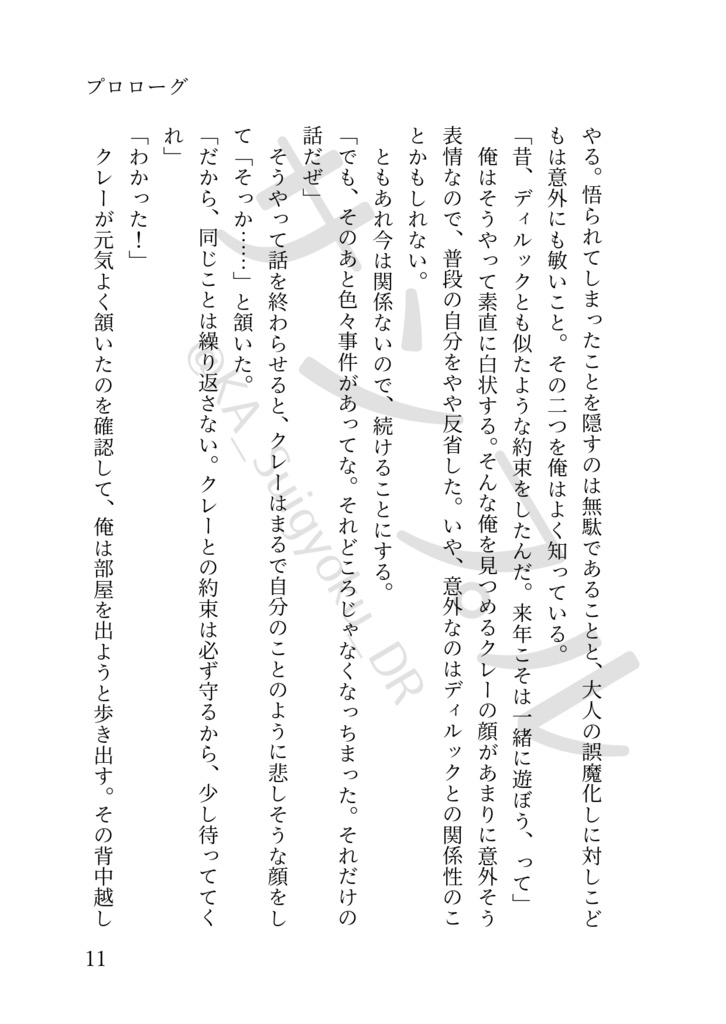 プロローグ
やる。悟られてしまったことを隠すのは無駄であることと、大人の誤魔化しに対しこど
もは意外にも敏いこと。その二つを俺はよく知っている。
「昔、ディルックとも似たような約束をしたんだ。来年こそは一緒に遊ぼう、って」
俺はそうやって素直に白状する。そんな俺を見つめるクレーの顔があまりに意外そう
表情なので、普段の自分をやや反省した。いや、意外なのはディルックとの関係性のこ
とかもしれない。
ともあれ今は関係ないので、続けることにする。
「でも、そのあと色々事件があってな。それどころじゃなくなっちまった。それだけの
話だぜ」
そうやって話を終わらせると、クレーはまるで自分のことのように悲しそうな顔をし
て「そっか……」と頷いた。
「だから、同じことは繰り返さない。クレーとの約束は必ず守るから、少し待っててく
れ」
「わかった！」
クレーが元気よく頷いたのを確認して、俺は部屋を出ようと歩き出す。その背中越し
11
サンプル
©KA_Suigyoku_DR